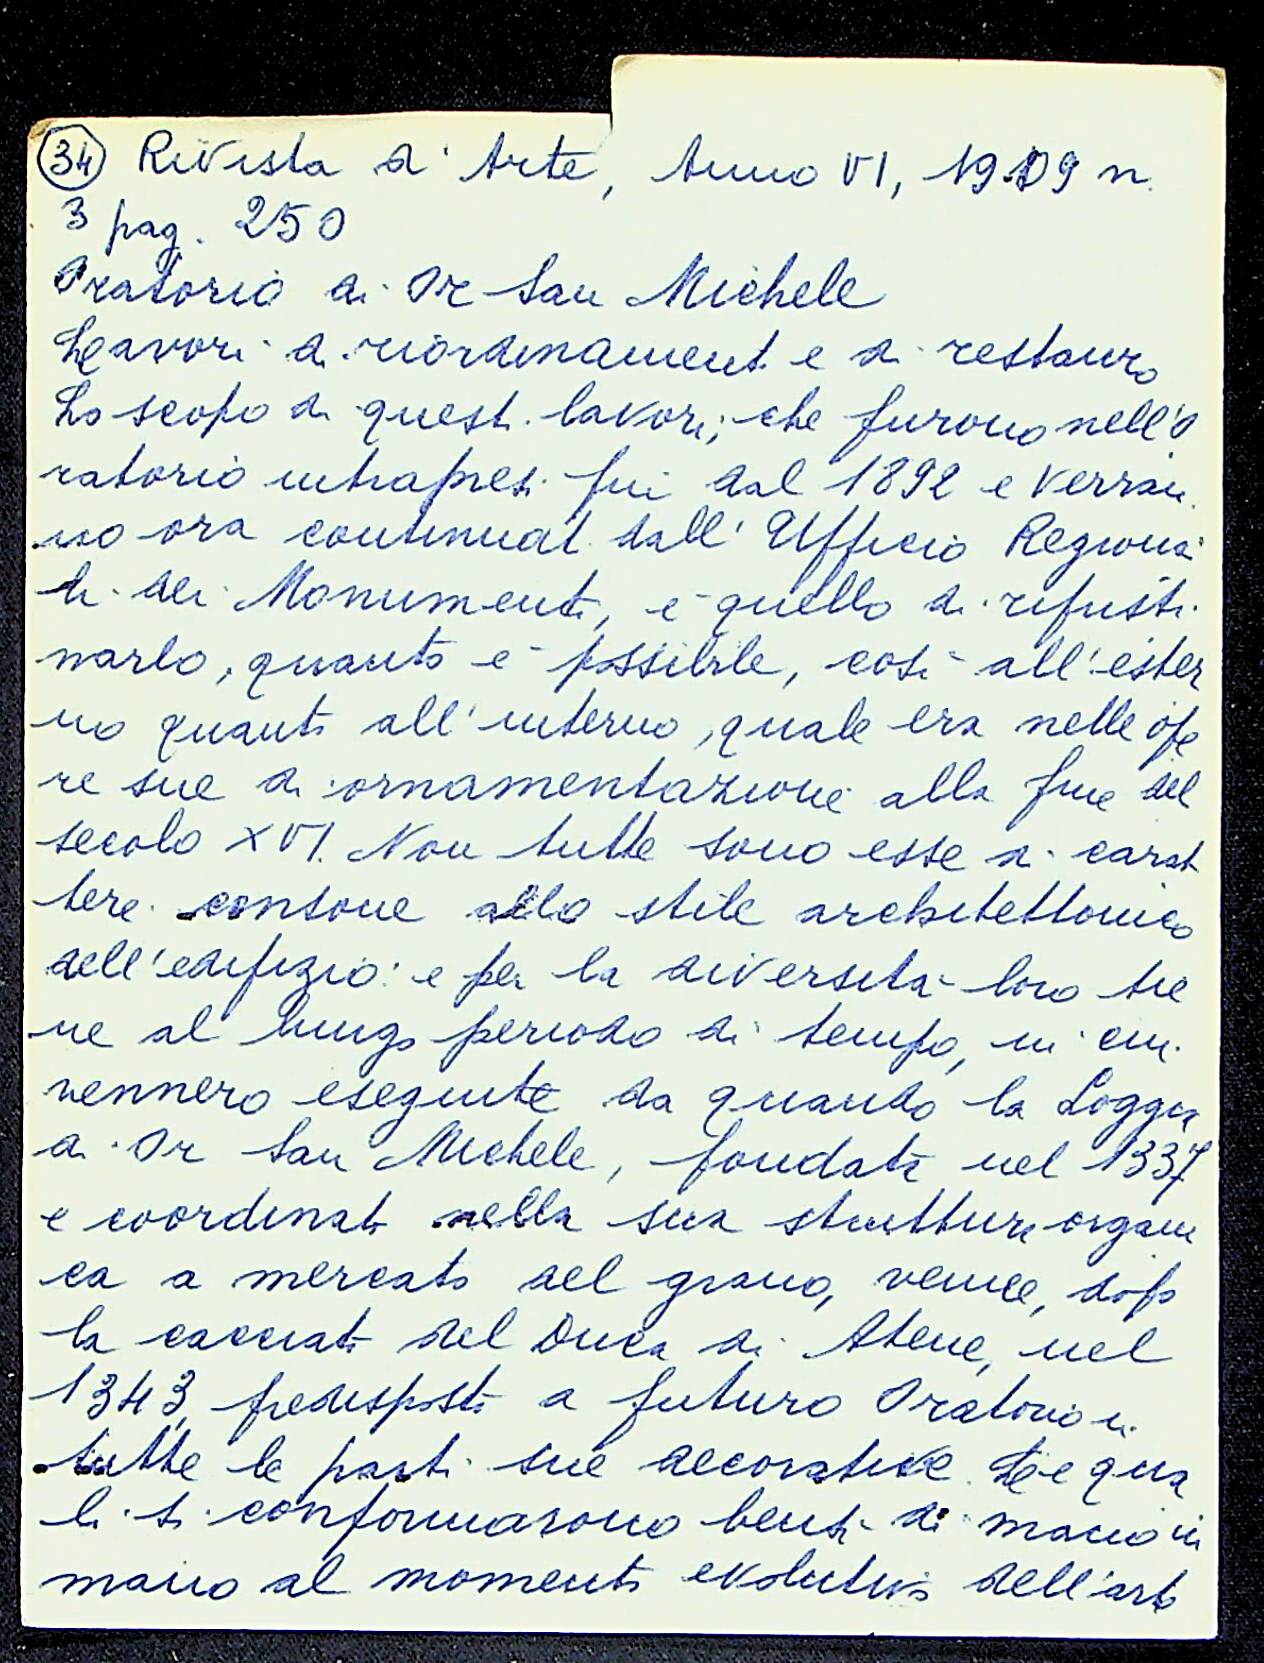 34 Rivista d'Arte, Anno VI, 1909 n.
3 pag. 250
Oratorio di Or San Michele
Lavori di riordinamento e di restauro
Lo scopo di questi lavori, che furono nell'o
ratorio intrapresi fin dal 1892 e verran
no ora continuati dall'Ufficio Regiona
le dei Monumenti, è quello di ripristi
narlo, quanto è possibile, così all'ester
no quanto all'interno, quale era nelle ope
re sue di ornamentazione alla fine del
secolo XVI. Non tutte sono esse di carat
tere consone allo stile architettonico
dell'edifizio: e per la diversità loro tie
ne al lungo periodo di tempo, in cui
vennero eseguite da quando la Loggia
di Or San Michele, fondata nel 1337
e coordinata nella sua struttura organi
ca a mercato del grano, venne, dopo
la cacciata del Duca di Atene, nel
1343, predisposta a futuro Oratorio in
tutte le parti sue decorative. Le qua
li si conformarono bensì di mano in
mano al momento evolutivo dell'arte